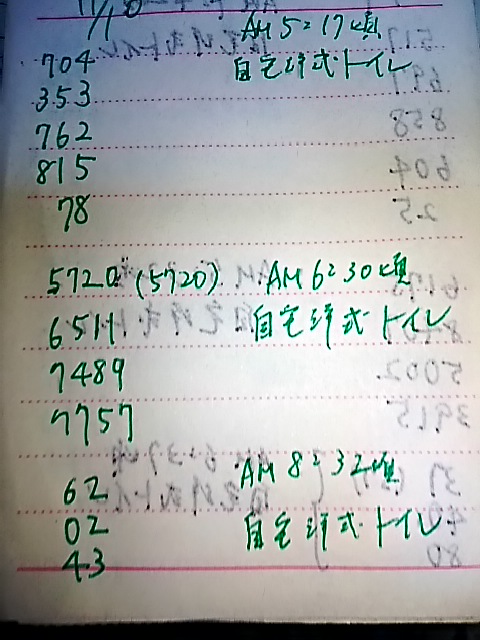 11/10 AM 5:17頃
704 自宅洋式トイレ
353
762
815
78
5720 (5720) AM 6:30頃
6511 自宅洋式トイレ
7489
7757
62 AM 8:32頃
02 自宅洋式トイレ
43